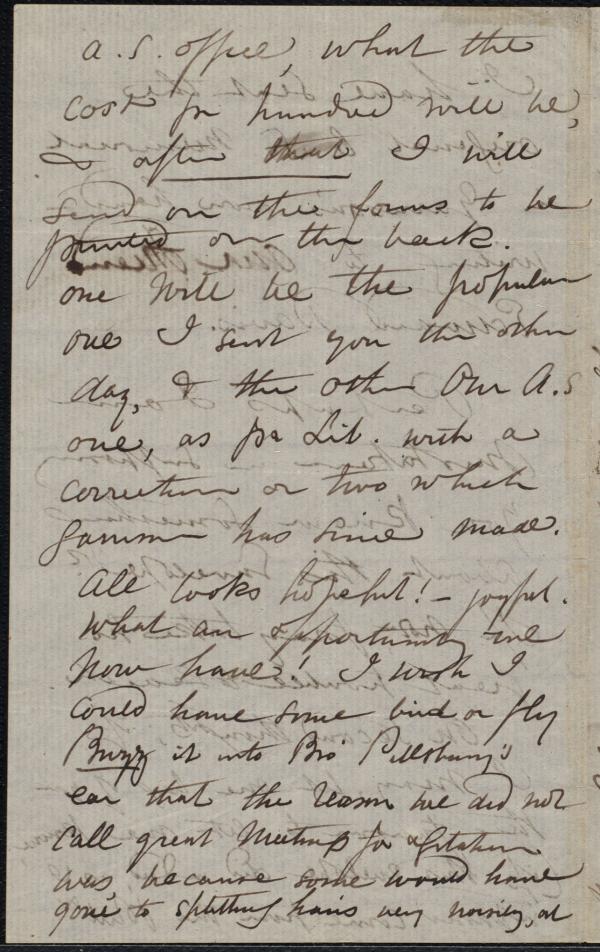 A. S. office, what the
cost per hundred will be,
& after that I will
send on the forms to be
printed on the back.
one will be the popular
one I sent you the other
day, & the other Our A. S
one, as per Lib. with a
correction or two which
Garrison has since made.
All looks hopeful! – joyful.
What an opportunity we
now have! I wish I
could have some bird or fly
Buzz it into Bro Pillsbury's
ear that the reason we did not
call great Meetings for agitation
was, because some would have
gone to splitting hairs very noisily, at